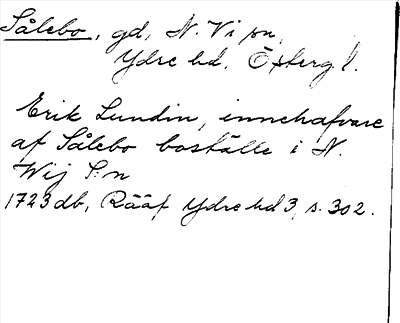 Sålebo, gd, N. Vi sn,
Ydre hd. Östergl.
Erik Lundin, innehafvare
af Sålebo boställe i N.
Wij S:n
1723 db, Rääf Ydre hd 3, s. 302.